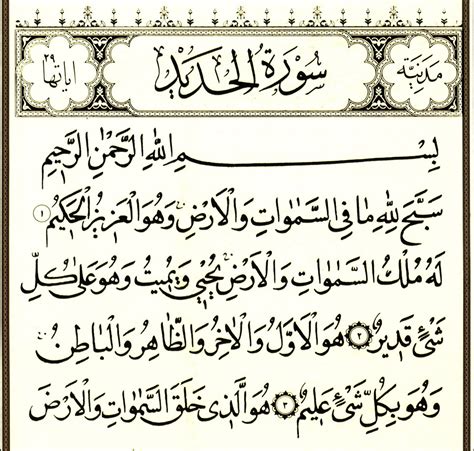 مَدَنِيَّة سُورَةُ الْحَدِيدِ اٰيَاتُهَا ٢٩
بِسْمِ اللّٰهِ الرَّحْمٰنِ الرَّحِيمِ
سَبَّحَ لِلّٰهِ مَا فِي السَّمٰوَاتِ وَالْاَرْضِ وَهُوَ الْعَزِيزُ الْحَكِيمُ ١
لَهُ مُلْكُ السَّمٰوَاتِ وَالْاَرْضِ يُحْيٖي وَيُمِيتُ وَهُوَ عَلٰى كُلِّ
شَيْءٍ قَدِيرٌ ٢ هُوَ الْاَوَّلُ وَالْاٰخِرُ وَالظَّاهِرُ وَالْبَاطِنُ
وَهُوَ بِكُلِّ شَيْءٍ عَلِيمٌ ٣ هُوَ الَّذِي خَلَقَ السَّمٰوَاتِ وَالْاَرْضَ